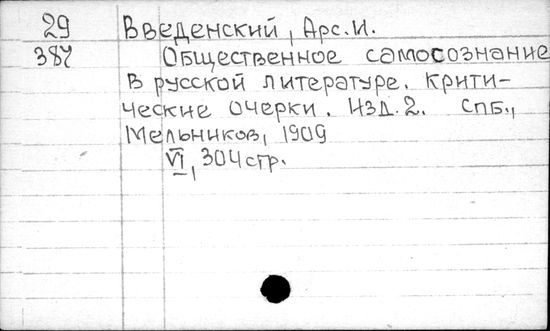 29 Введенский, Арс.И.
387 Общественное самосознание
в русской литературе. Крити-
ческие очерки. Изд.2. СПб.,
Мельников, 1909
VI, 304 стр.